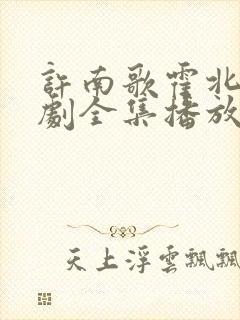 許南歌霍北
劇全集播放
天上浮雲飄飄